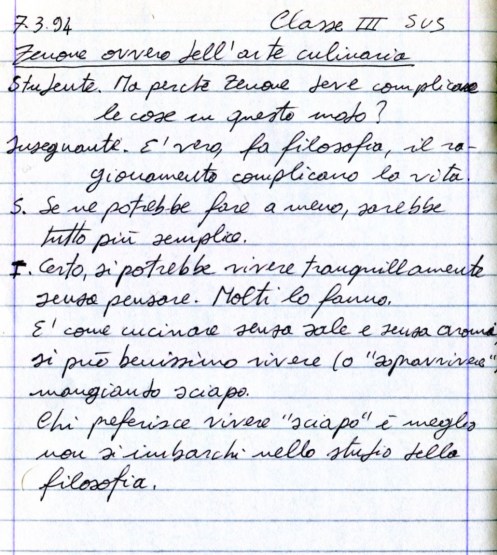 7.3.94 Classe III SUS
Zenone ovvero dell'arte culinaria
Studente. Ma perché Zenone deve complicare
le cose in questo modo?
Insegnante. E' vero, fa filosofia, il ra-
gionamento complicano la vita.
S. Se ne potrebbe fare a meno, sarebbe
tutto più semplice.
I. Certo, si potrebbe vivere tranquillamente
senza pensare. Molti lo fanno.
E' come cucinare senza sale e senza aromi,
si può benissimo vivere (o "sopravvivere")
mangiando sciapo.
Chi preferisce vivere "sciapo" è meglio
non si imbarchi nello studio della
filosofia.